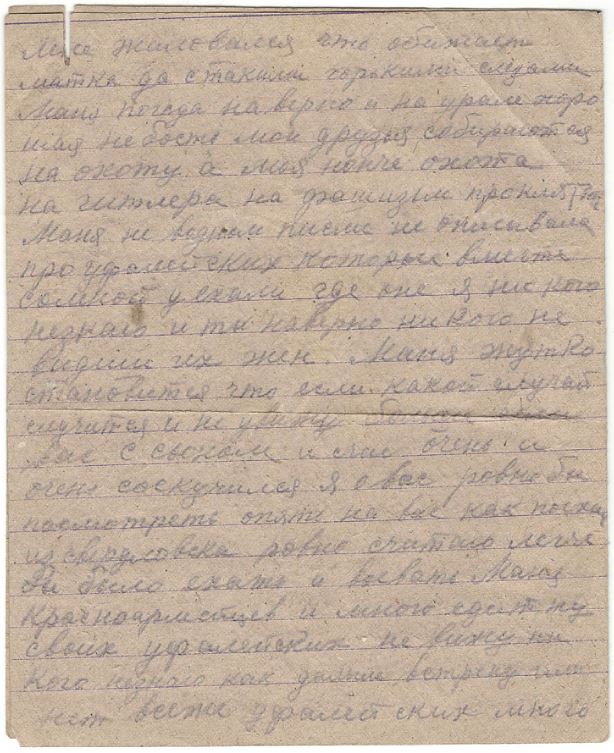 мне жаловался что обижает
матка да стакими горькими слезами
Маня погода наверно и на урале хоро
шая небось мои друзья собираются
на охоту а мия нонче охота
на гитлера на фашизым проклят
Маня не водном писме не описывала
про уфалейских которые вместе
сомной уехали где оне я ни кого
незнаю и ты наверно никого не
видиш их жен. Маня жутко
становится что если какой случай
случится и не увижу
вас с сыном и мне очень и
очень соскучился я о вас ровно бы
посмотреть опять на вас как поехал
из свердловска ровно считаю легче
бы было ехать и воевать Маня
красноармейцев и много едит ну
своих уфалейских не вижу ни
кого незнаю как дальше встречу или
нет всеже уфалейских много